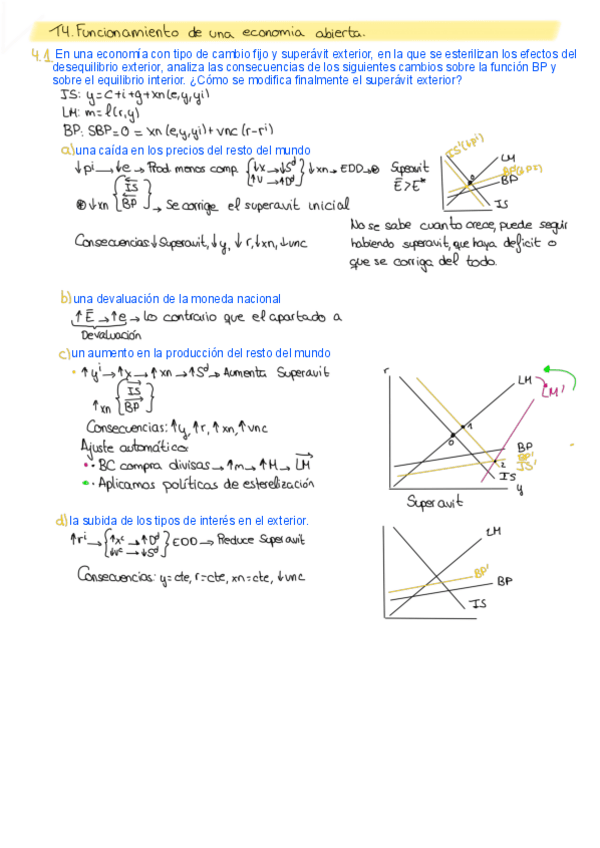 T4. Funcionamiento de una economia abierta.
4.1 En una economía con tipo de cambio fijo y superávit exterior, en la que se esterilizan los efectos del
desequilibrio exterior, analiza las consecuencias de los siguientes cambios sobre la función BP y
sobre el equilibrio interior. ¿Cómo se modifica finalmente el superávit exterior?
IS: y=c+i+g+xn(e,y,yi)
LM: m=l(r,y)
BP: SBP=0=xn(e,y,yi)+vnc(r-ri)
a) una caída en los precios del resto del mundo
↓pi→↓e→Prod menos comp. {↓x→↓Sd ↑v→↑Dd} ↓xn→EDD→⊕ Superavit
E>E*
⊕↓xn {IS BP}→Se corrige el superavit inicial
Consecuencias↓Superavit,↓y,↓r,↓xn,↓vnc
IS'(↓pi)
LM
BP
IS
No se sabe cuanto crece, puede seguir
habiendo superavit, que haya deficit o
que se corriga del todo.
b) una devaluación de la moneda nacional
↑E→↑e→Lo contrario que el apartado a
Devaluación
c) un aumento en la producción del resto del mundo
↑yi→↑x→↑xn→↑Sd→Aumenta Superavit
↑xn {IS BP}
Consecuencias:↑y,↑r,↑xn,↑vnc
Ajuste automático:
• BC compra divisas→↑m→↑M→LM
• Aplicamos políticas de esterelización
r
LM
LM'
0
1
2
BP
BP'
IS'
IS
y
Superavit
d) la subida de los tipos de interés en el exterior.
↑ri→{↑xc→↑Dd ↓vc→↓Sd} EDD→Reduce Superavit
Consecuencias: y=cte, r=cte, xn=cte, ↓vnc
LM
BP'
BP
IS